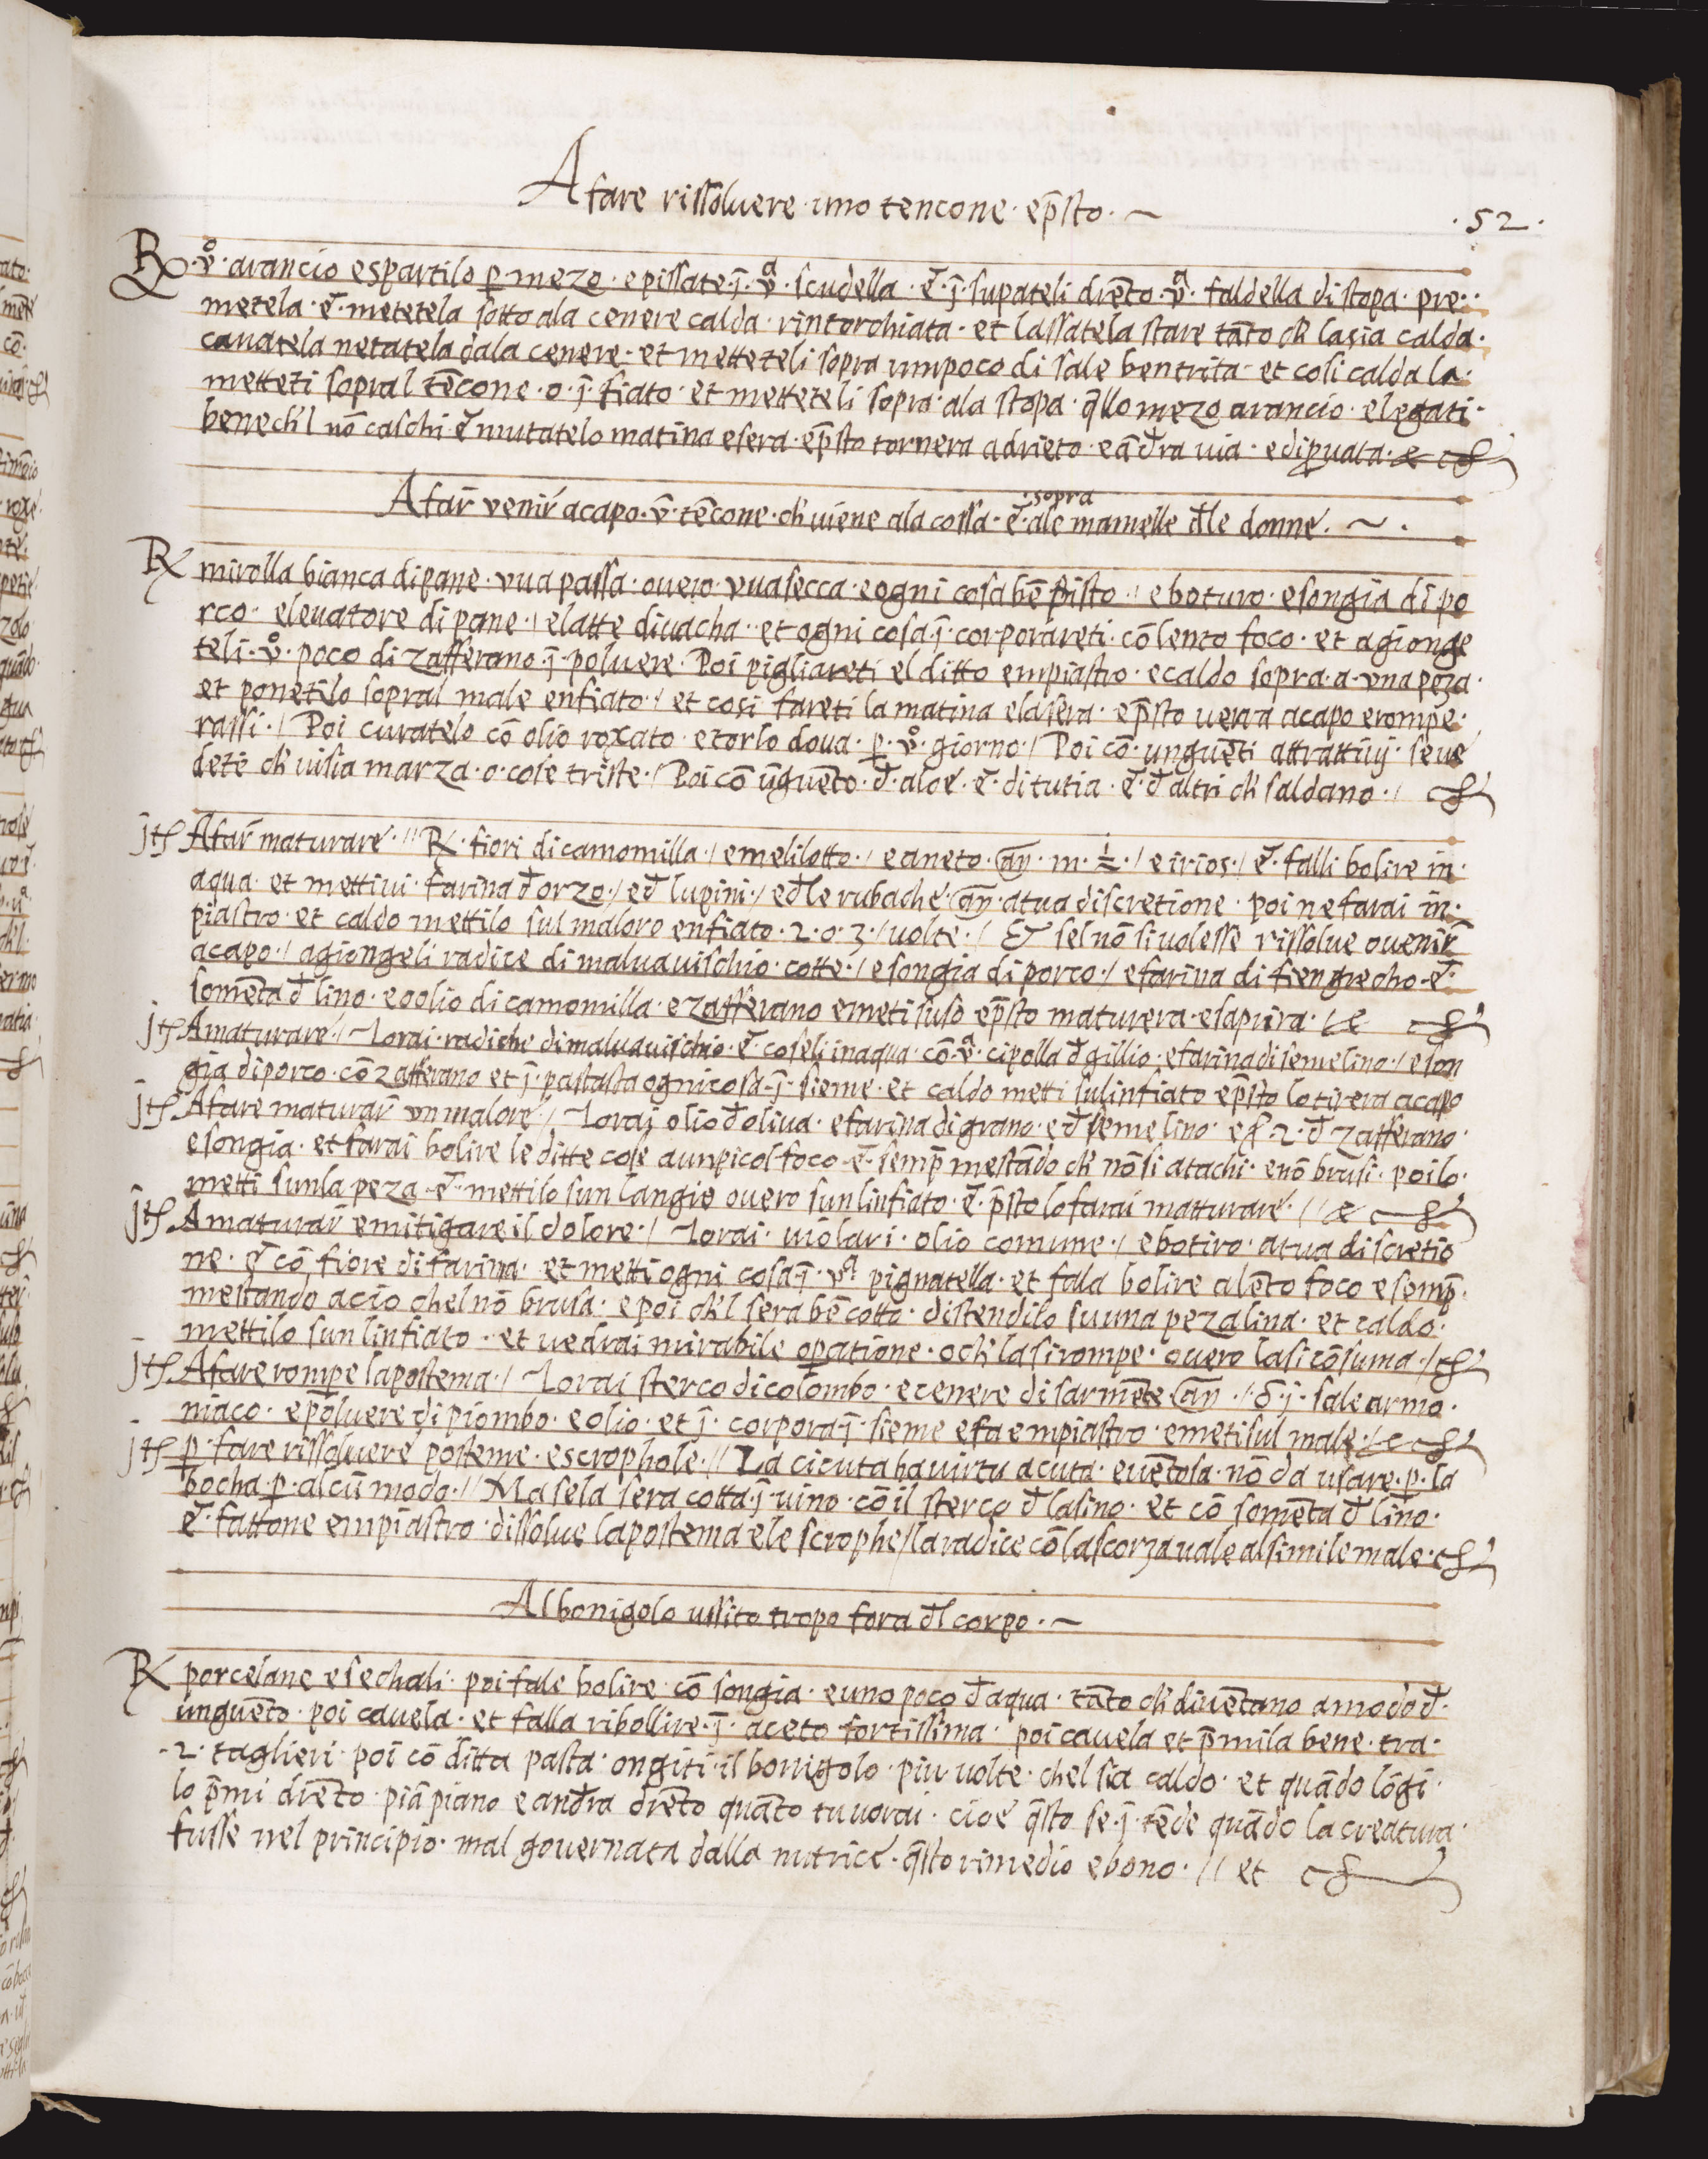 A fare rissoluere uno tencone ep̄sto ~
.52.
℞ .v̊. arancio espartilo p̱ mezo. epissate .j̄. vͣ. scudella .& .j̄. supateli drēto .vͣ. faldella di stopa. pre..
metela .&. metetela sotto ala cenere calda. rintorchiata. et lassatela stare tāto ch' lasia calda.
cauatela netatela dala cenere. et metteteli sopra unpoco di sale bentrita. et cosi calda la.
metteti sopral tēcone .o. j̄. fiato. et metteteli sopra. ala stopa. q̄llo mezo arancio. elegati.
benech'l nō caschi. & mutatelo matina esera. ep̄sto tornera adrieto. eādra uia. ediṗuata.
A far̄ venir̄ acapo. v̄. tēcone. ch' uiene ala cossa. &. ale mamelle d̄le donne. ~ .
.sopra
℞ mirolla bianca dipane. vua passa. ouero. vuasecca. eogni cosa bē pisto ./ eboturo. esongia di po
rco. eleuatore di pane./ elatte diuacha .. et ogni cosa .j̄. corporareti. cō lento foco. et agionge
teli .v̊. poco di zafferano .j̄. poluere. Poi pigliareti el ditto empiastro. ecaldo sopra. a. vna peza.
et ponetilo sopral male enfiato./ et cosi fareti la matina elasera. ep̄sto uerra acapo erompe.
rassi./ Poi curatelo cō olio roxato. etorlo doua. p̱. v̊. giorno./ Poi cō. unguēti attrattiuj. seue
dete ch' uisia marza. o. cose triste./ Poi cō ūguēto. d̄. aloe. &. di tutia. &. d̄ altri ch' saldano./
jtꝭ A far̄ maturare.// ℞. fiori di camomilla./ emelilotto./ e aneto. añ. m. ½./ e irios./ &. falli bolire in.
aqua. et mettiui. farina d̄ orzo./ ed̄ lupini./ ed̄le rubache. añ. atua discretione. poi ne farai in.
piastro. et caldo mettilo sul maloro enfiato. 2. o. 3./ uolte./ Et sel nō si uolesse rissolue ouenir̄
acapo./ agiongeli radice di maluauischio. cotte./ esongia di porco./ efarina di fiengrecho. &.
somēta d̄ lino. eoolio di camomilla. ezafferano emeti suso ep̄sto maturera. esaprira./ &
jtꝭ Amaturare./ Torai. radiche dimaluauischio. &. coseli inaqua. cō. vͣ. cipolla d̄ gillio. efarina di semelino./ eson
gia di porco. cō zafferano et .j̄. pastasta ognicosa .j̄. sieme. et caldo metti sulinfiato ep̄sto lo tirera acapo
jtꝭ Afare maturar̄ vn malore./ Torai olio d̄ oliua. efarina di grano. ed̄ semelino. eʒ. 2. d̄ zafferano.
esongia. et farai bolire le ditte cose aunpicol foco. &. semp̄ mestādo ch' nō si atachi. enō brusi. poilo.
metti sunla peza. &. mettilo sun langio ouero sun linfiato. &. p̄sto lo farai matturare.// &
jtꝭ Amaturar̄ emitigare il dolore./ Torai. uiolari. olio comune./ ebotiro. atua discretio
ne. & cō fiore di farina. et metti ogni cosa .j̄. vͣ. pignatella. et falla bolire alēto foco esemp̄.
mestando acio chel nō brusa. epoi ch'l sera bē cotto. distendilo suuna pezalina. et caldo.
mettilo sun linfiato. et uedrai mirabile opatione. och' la si rompe. ouero lasi cōsuma./
jtꝭ Afare rompe lapostema./ Torai sterco di colombo. ecenere di sarmēte añ./ ℥. j. sale armo.
niaco. epoluere di piombo. eolio. et .j̄. corpora .j̄. sieme efa empiastro. emetisul male./ &
jtꝭ p̱. fare rissoluere posteme. escrophole.// La cicuta ha uirtu acuta. euētosa. nō da usare. p̱. la
bocha p̱. alcū modo.// Ma sela sera cotta .j̄. uino. cō il sterco d̄ lasino. et cō somēta d̄ lino.
&. fattone empiastro. dissolue lapostema ele scrophe/ la radice cō la scorza uale al simile male.
Al bonigolo ussito tropo fora d̄l corpo. ~
℞ porcelane esechali. poi fale bolire. cō songia. euno poco d̄ aqua. tāto ch' diuētano amodo d̄.
unguēto. poi cauela. et falla ribollire .j̄. aceto fortissima. poi cauela et p̄mila bene. tra.
.2. taglieri. poi cō ditta pasta. ongiti. il bonigolo. piu uolte. chel sia caldo. et quādo lōgi.
lo p̄mi drēto. piā piano eandra drēto quāto tu uorai. cioe q̄sto se .j̄. tēde quādo la creatura.
fusse nel principio. mal gouernata dalla nutrice. q̄sto rimedio ebono.// et